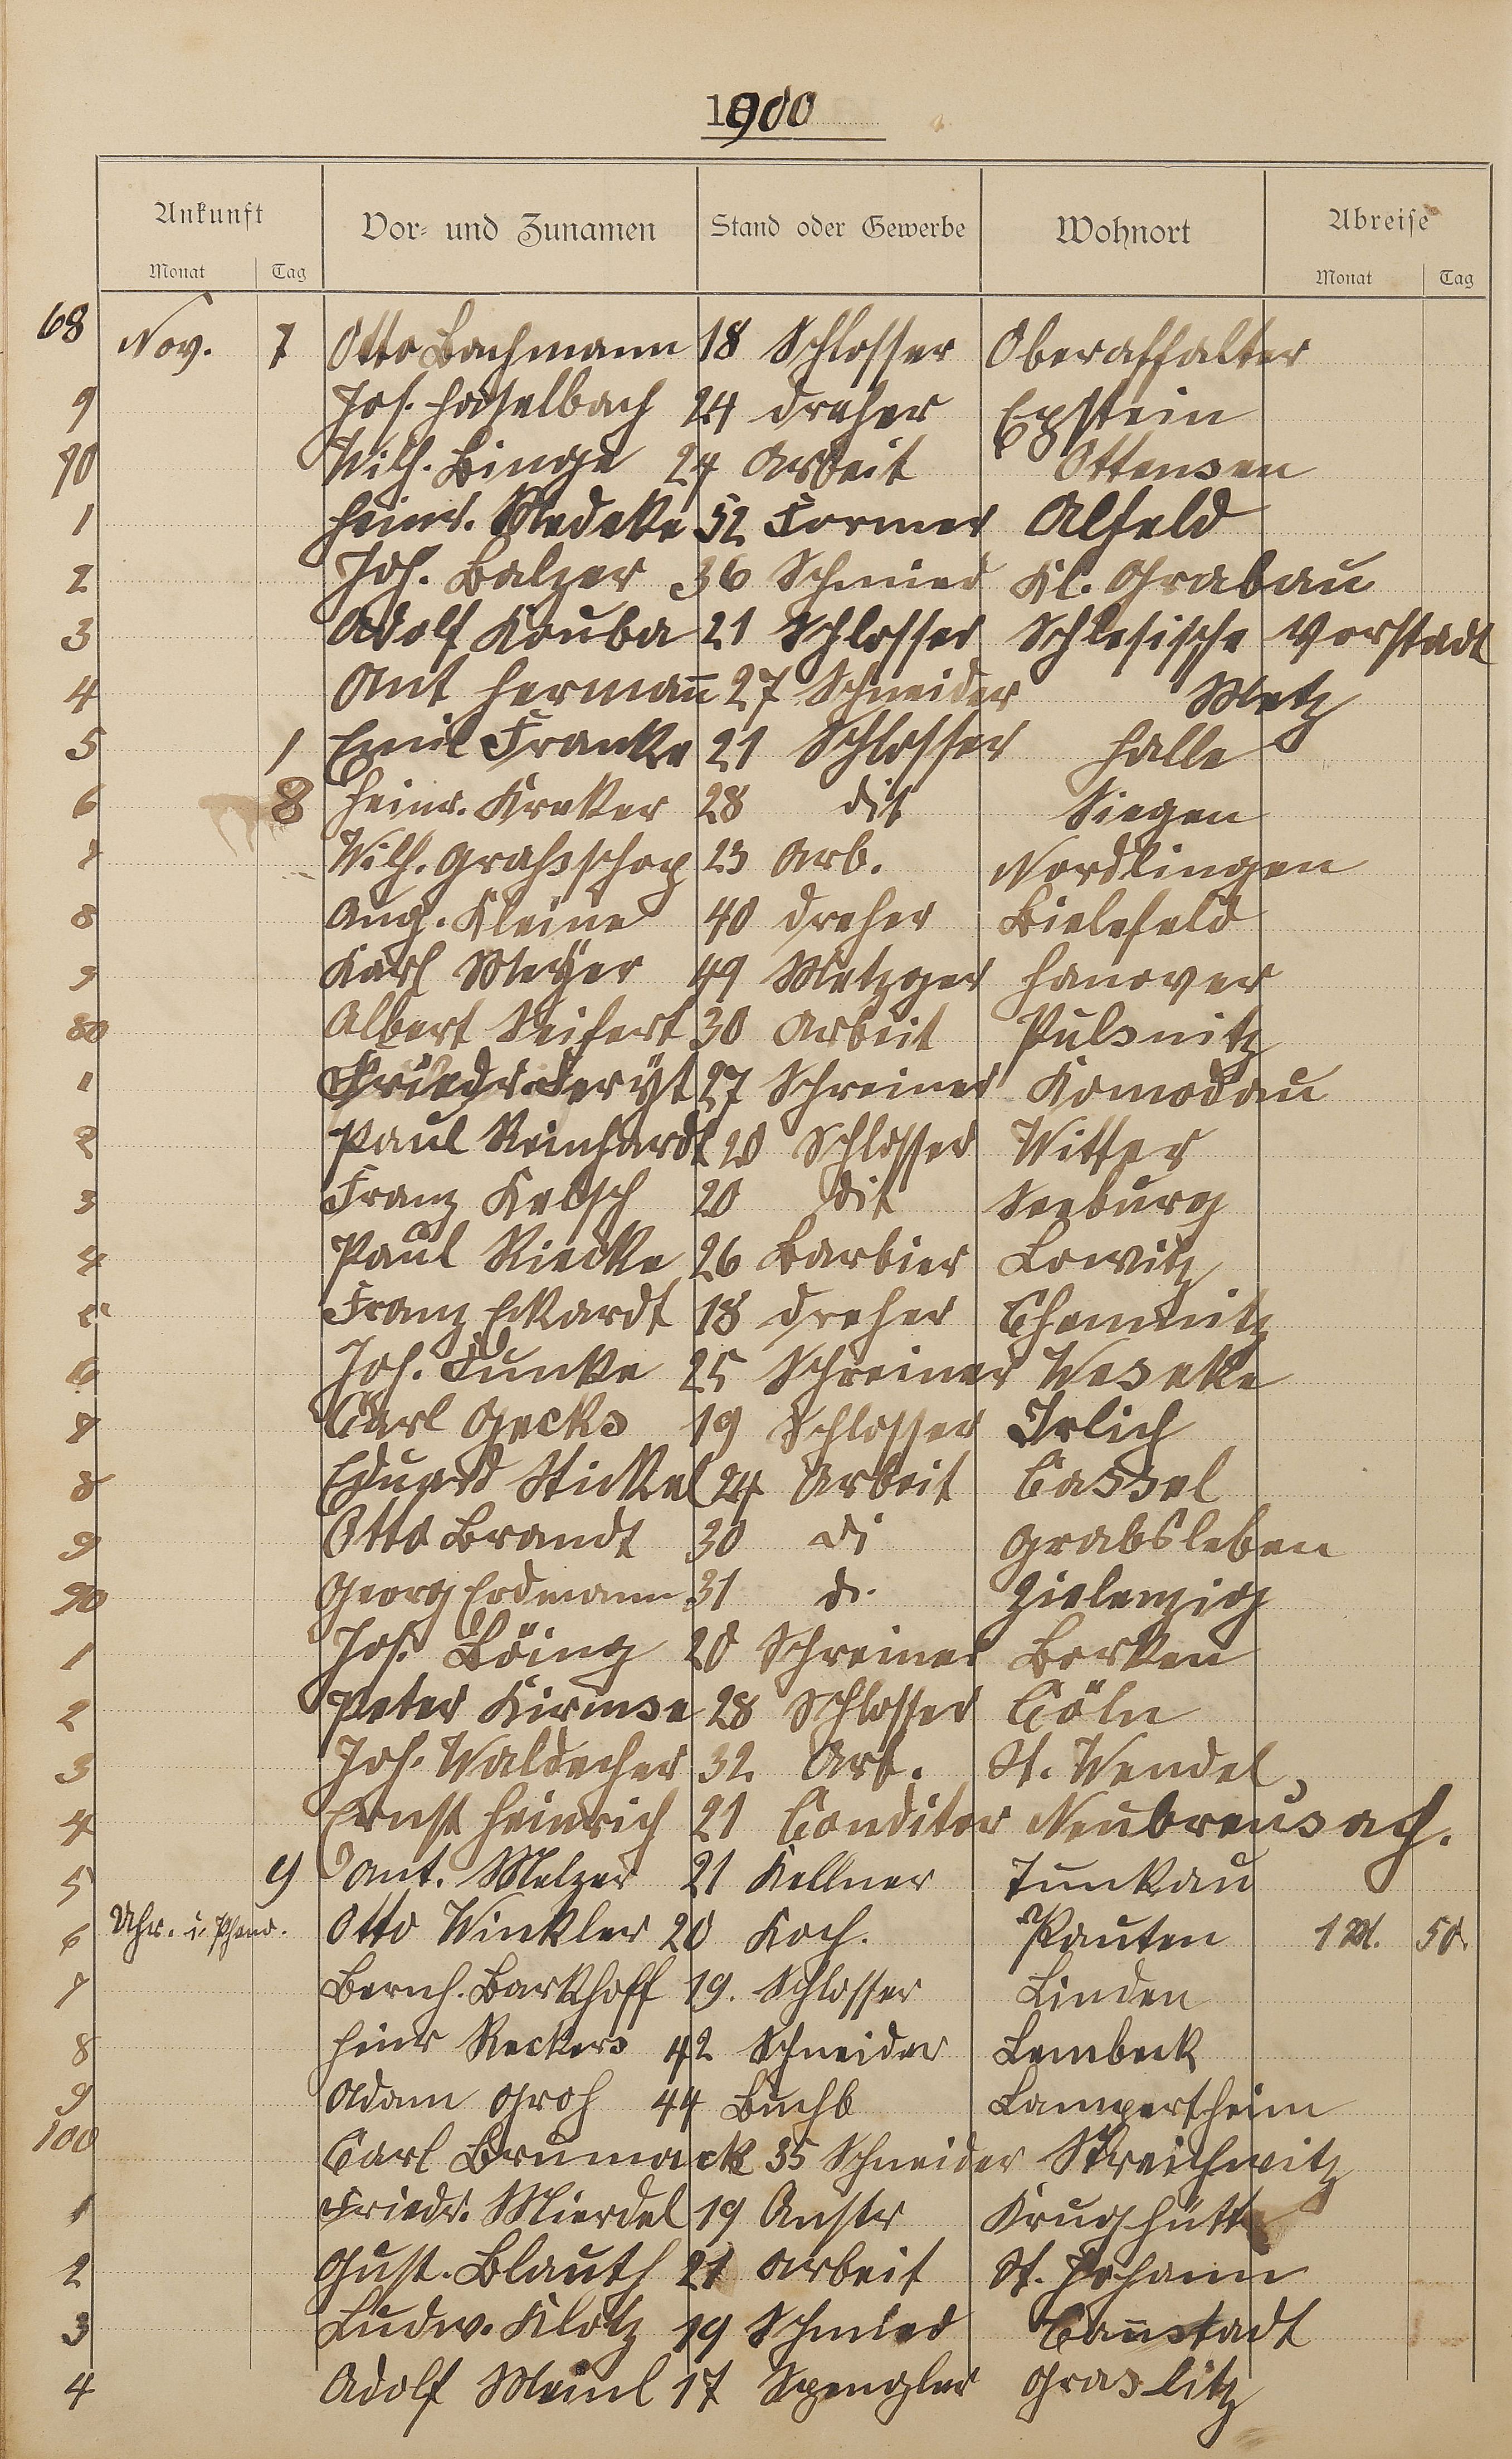 1900
Ankunft Vor- und Zunamen Stand oder Gewerbe Wohnort Abreise
Monat Tag Monat Tag
68 Nov. 7 Otto Bachmann 18 Schlosser Oberaffalter
9 Jos. Haselbach 24 Dreher Epstein
70 Wilh. Binge 24 Arbeit Ottensen
1 Heinr. Medeke 52 Former Alfeld
2 Joh. Balzer 36 Schmied Kl. Grabau
3 Adolf Kouba 21 Schlosser Schlesische Vorstadt
4 Ant Herman̄ 27 Schneider Metz
5 1 Emil Franke 21 Schlosser Halle
6 8 Heinr. Kreker 28 dit Siegen
7 Wilh. Graßschop 23 Arb. Nordlingen
8 Aug. Kleine 40 Dreher Bielefeld
9 Karl Meyer 49 Metzger Hanover
80 Albert Seifert 30 Arbeit Pulsnitz
1 Friedr. Feryt 27 Schreiner Komodau
2 Paul Reinhardt 20 Schlosser Witter
3 Franz Kelsch 20 dit Seeburg
4 Paul Riedke 26 Barbier Lowitz
5 Franz Eckardt 18 Dreher Chemnitz
6 Joh. Tunke 25 Schreiner Weseke
7 Carl Gecks 19 Schlosser Irlich
8 Eduard Stickel 24 Arbeit Cassel
9 Otto Brandt 30 di Grabsleben
90 Georg Erdmann 31 d. Zielenzig
1 Jos. Böing 20 Schreiner Borken
2 Peter Kirmse 28 Schlosser Cöln
3 Joh. Waldecher 32 Arb. St. Wendel,
4 Ernst Heinrich 21 Conditor Neubreusach.
5 9 Ant. Melzer 21 Kellner Tunkau
6 Uhr. i. Pfand. Otto Winkler 20 Koch. Pauten 1 M. 50.
7 Bernh. Barkhoff 19. Schlosser Linden
8 Hinr Reckers 42 Schneider Lembeck
9 Adam Groh 44 Buchb Lampertheim
100 Carl Brumack 35 Schneider Streichwitz
1 Friedr. Mierdel 19 Anstr Krughütte
2 Gust. Blauth 21 Arbeit St. Johann
3 Ludw. Klotz 19 Schmied Can̄stadt
4 Adolf Meinl 17 Spengler Graslitz